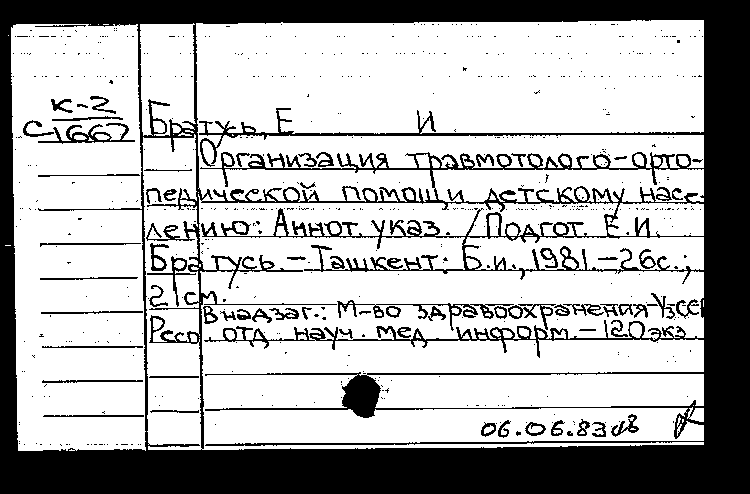 к-2
с 1667
Братусь, Е И
Организация травмотолого-орто-
педической помощи детскому насе-
лению: Аннот. указ. / Подгот. Е.И.
Братусь. – Ташкент: Б.и., 1981. – 26с.;
21см.
В надзаг.: М-во здравоохранения УзССР
Респ. отд науч. мед. информ. – 120 экз
06.06.83